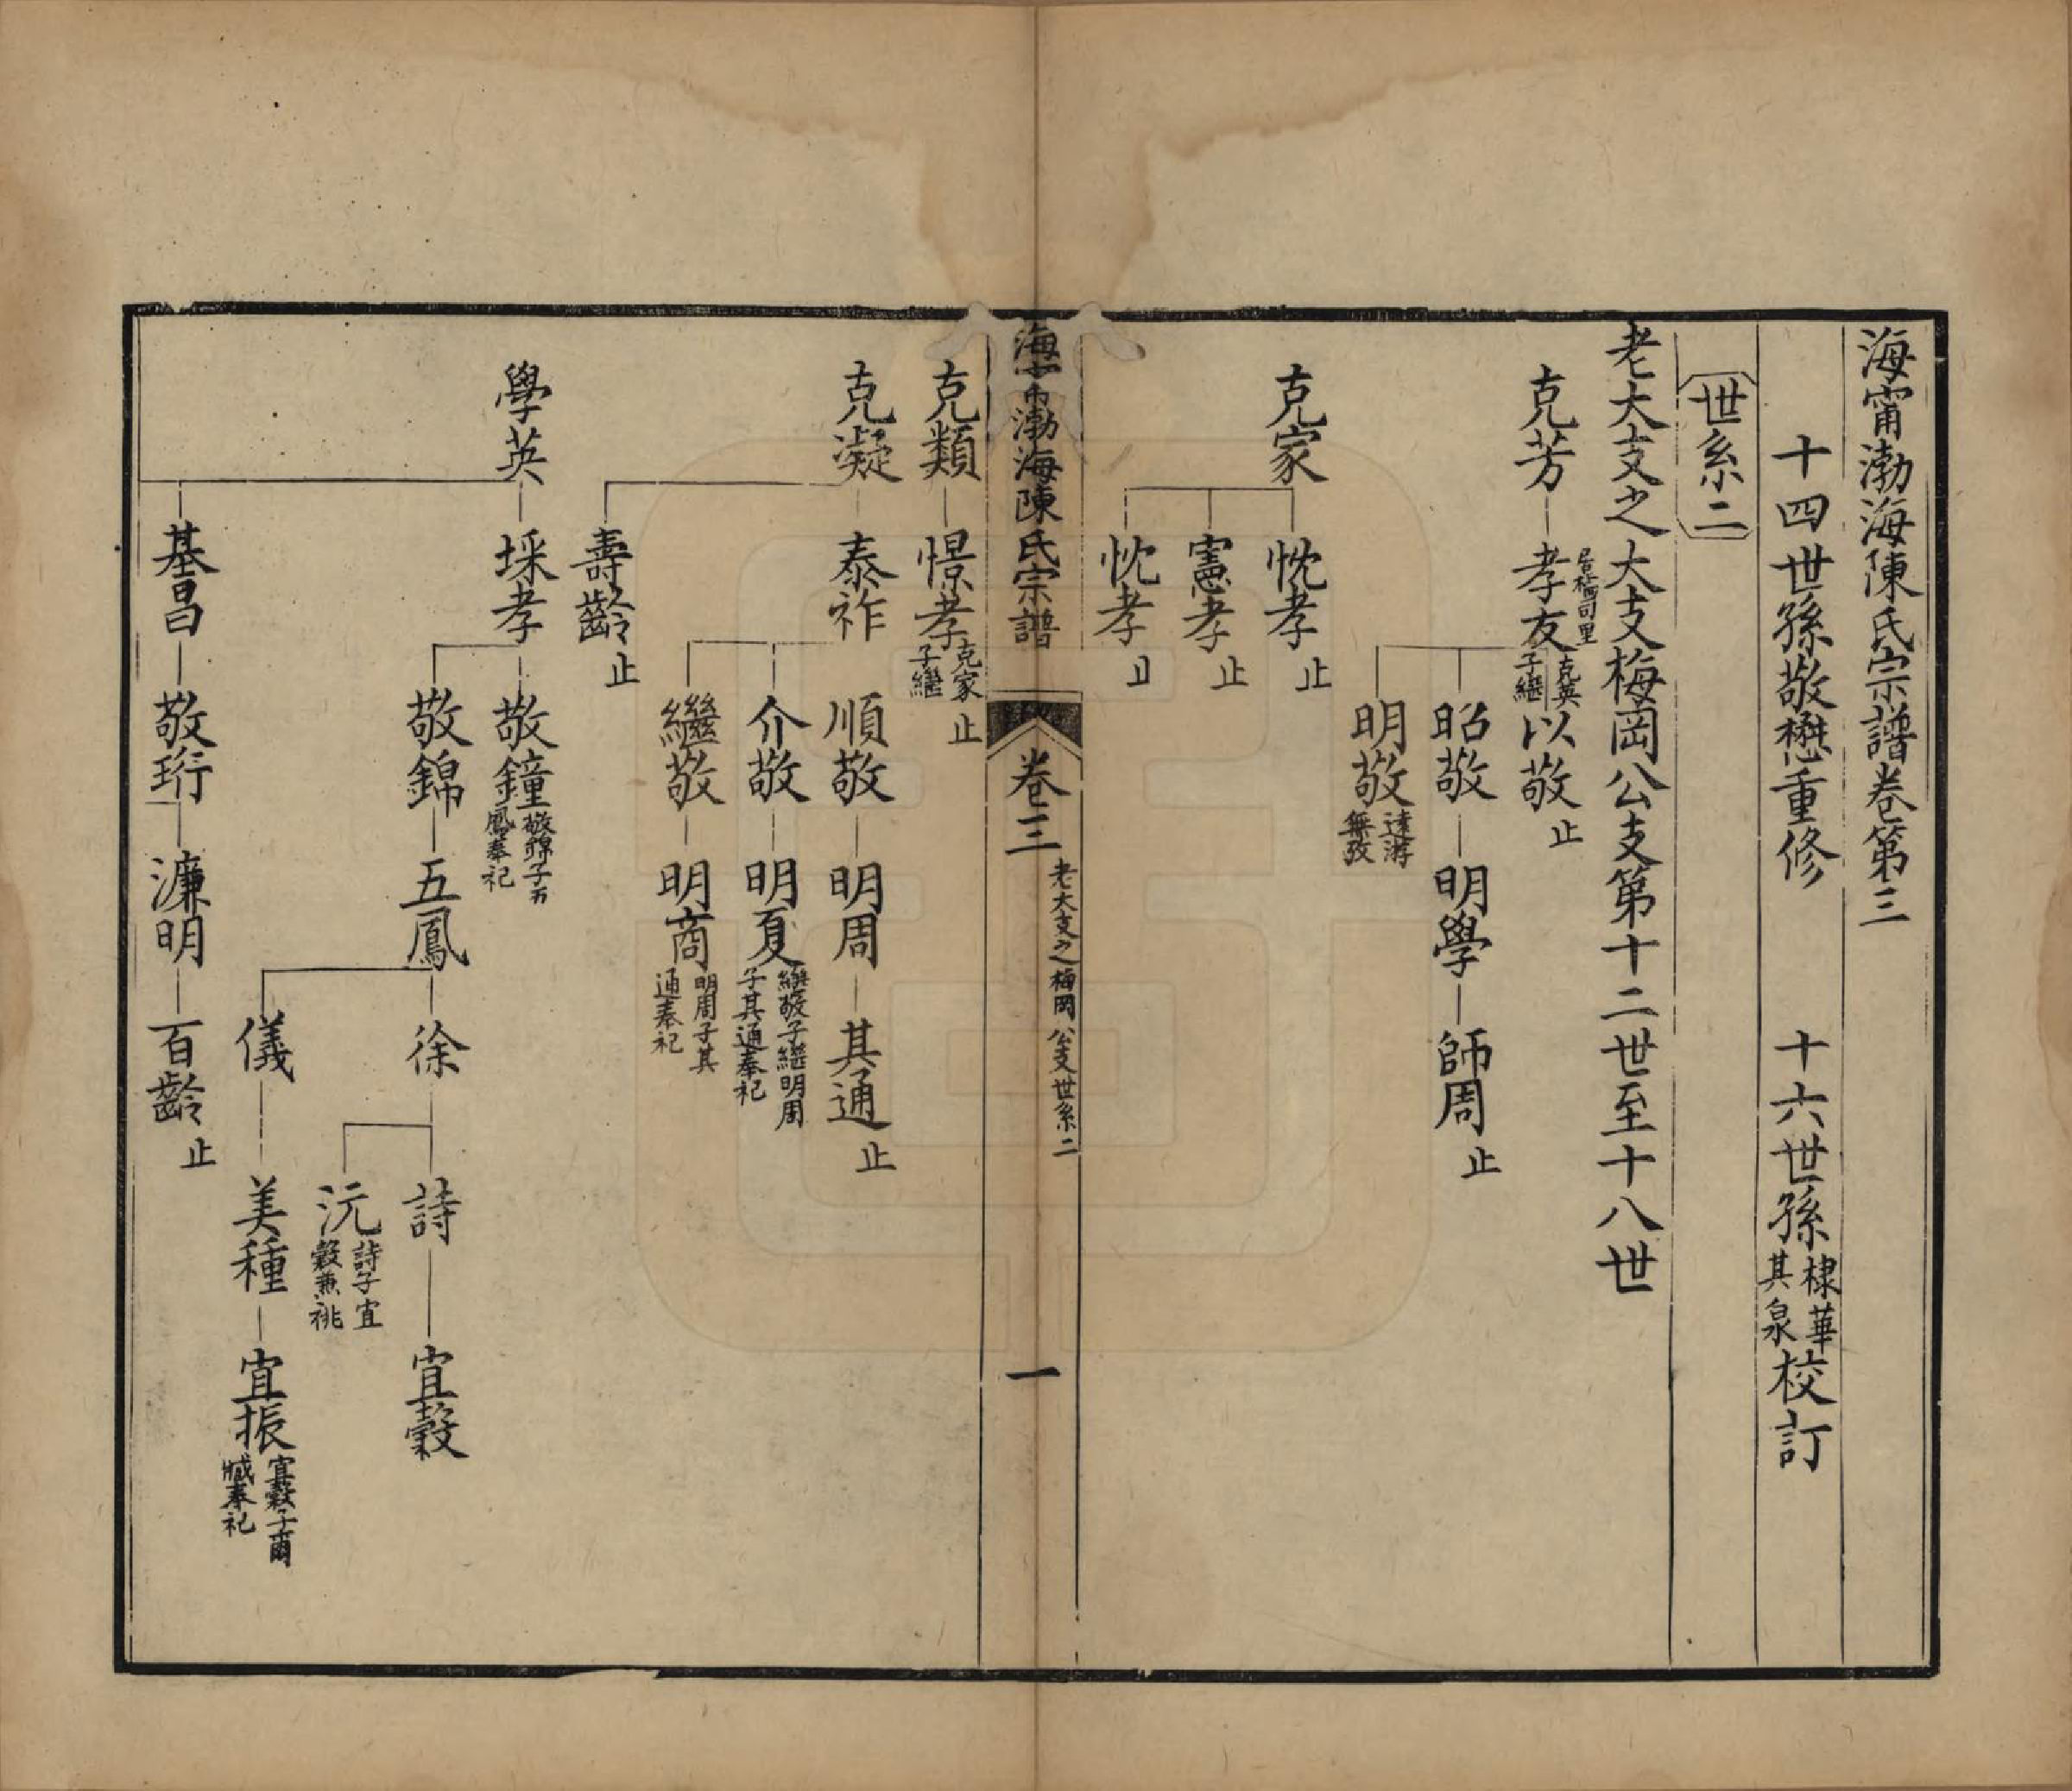 海甯渤海陳氏宗譜卷第三
十四世孫敬懋重修 十六世孫棣華其泉校訂
世系二
老大支之大支梅岡公支第十二世至十八世
克芳 孝友 居梅司里 克英子繼 以敬 止
昭敬 明學 師周 止
明敬 遠游無孜
克家 忱孝 止
憲孝 止
忱孝 止
海甯渤海陳氏宗譜 卷三 老大支之梅岡公支世系二 一
克類 憬孝 克家子繼 止
克凝 泰祚 順敬 明周 其通 止
介敬 明夏 繼敬子繼明周子其通奉祀
繼敬 明商 明周子其通奉祀
壽齡 止
學英 埰孝 敬鐘 敬錦子五鳳奉祀
敬錦 五鳳 徐 詩 宜穀
沅 詩子宜穀兼祧
儀 美種 宜振 宜穀子爾臧奉祀
基昌 敬珩 濂明 百齡 止